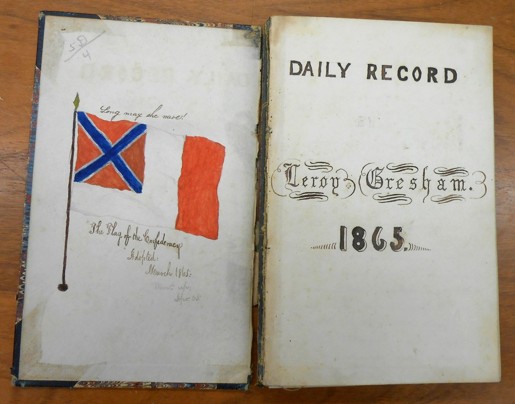 Long may she wave!
The Flag of the Confederacy
Adopted
March 1865.
DAILY RECORD
Leroy Gresham.
1865.